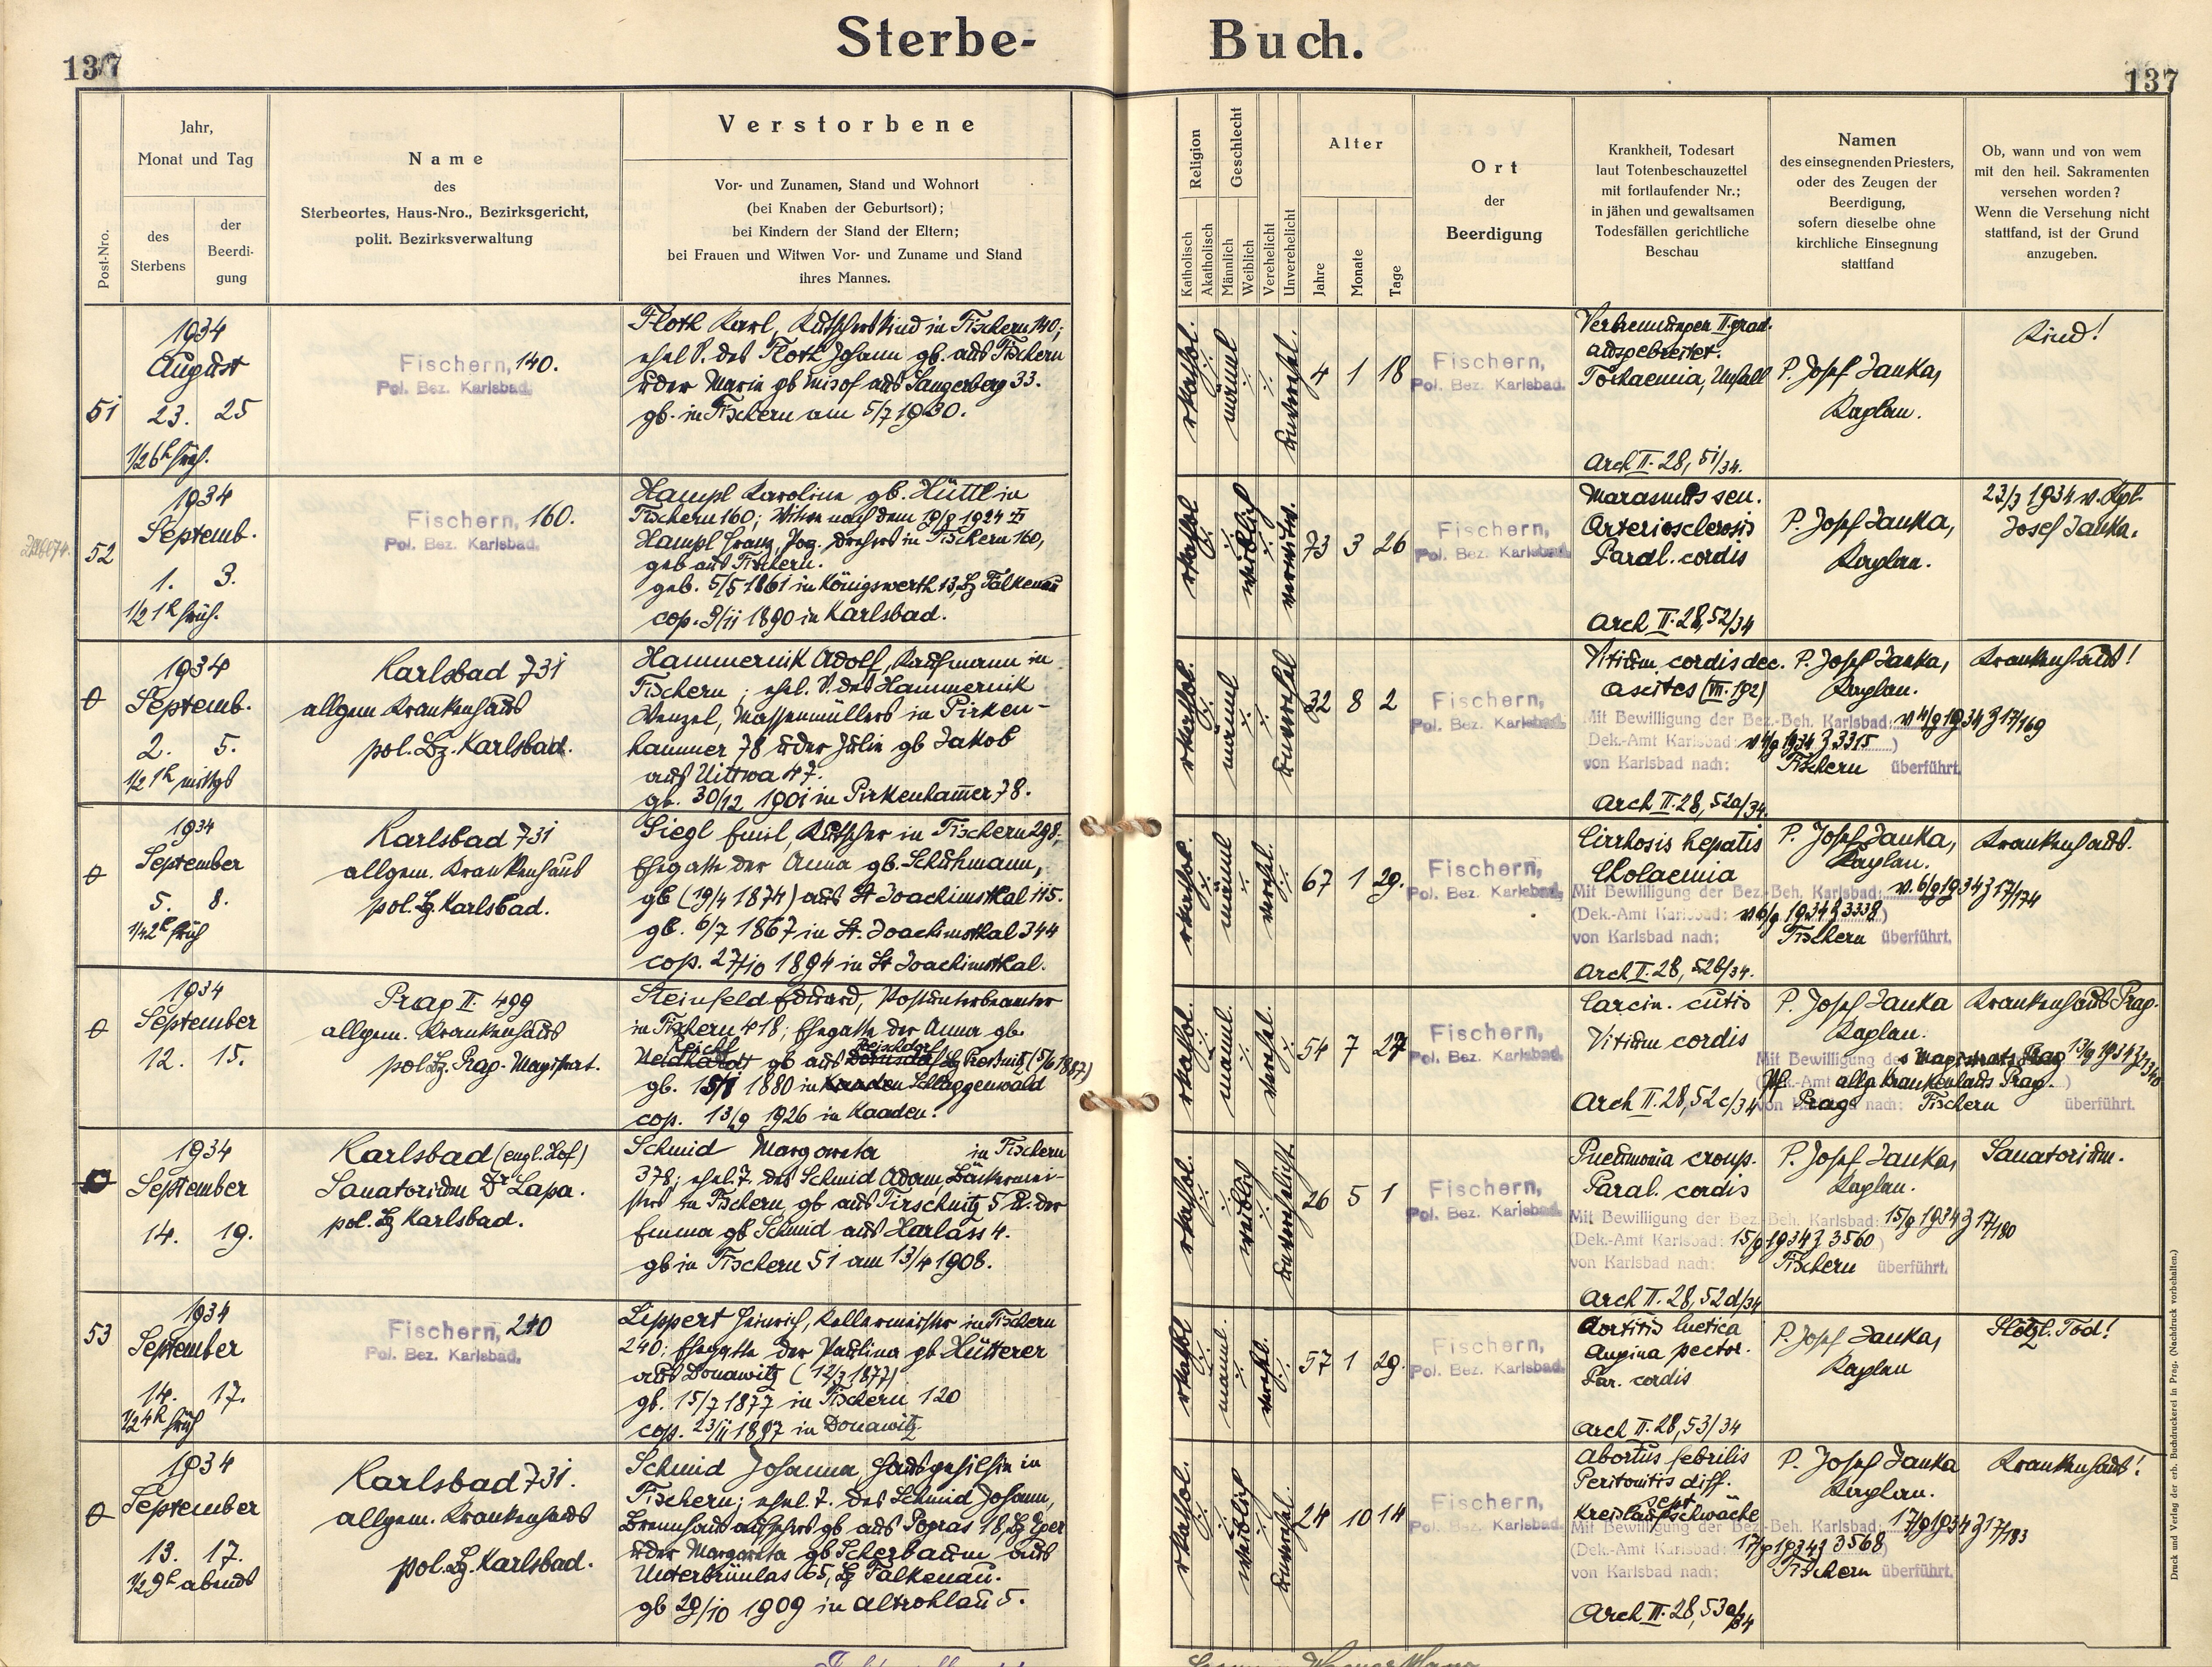 Sterbe-
Buch.
137
137
Post-Nro.
Jahr,
Monat und Tag
des
Sterbens
der
Beerdi-
gung
Name
des
Sterbeortes, Haus-Nro., Bezirksgericht,
polit. Bezirksverwaltung
Verstorbene
Vor- und Zunamen, Stand und Wohnort
(bei Knaben der Geburtsort);
bei Kindern der Stand der Eltern;
bei Frauen und Witwen Vor- und Zuname und Stand
ihres Mannes.
Religion
Katholisch
Akatholisch
Geschlecht
Männlich
Weiblich
Verehelicht
Unverehelicht
Alter
Jahre
Monate
Tage
Ort
der
Beerdigung
Krankheit, Todesart
laut Totenbeschauzettel
mit fortlaufender Nr.;
in jähen und gewaltsamen
Todesfällen gerichtliche
Beschau
Namen
des einsegnenden Priesters,
oder des Zeugen der
Beerdigung,
sofern dieselbe ohne
kirchliche Einsegnung
stattfand
Ob, wann und von wem
mit den heil. Sakramenten
versehen worden?
Wenn die Versehung nicht
stattfand, ist der Grund
anzugeben.
51
1934
August
23. 25
1/2 6h früh.
Fischern, 140.
Pol. Bez. Karlsbad.
Floth Karl, Kutscherskind in Fischern 140;
ehel S. des Floth Johann gb. aus Fischern
u der Marie gb Misof aus Sangerberg 33.
gb. in Fischern am 5/7 1930.
rkathol.
männl
unverehel.
4 1 18
Fischern,
Pol. Bez. Karlsbad.
Verbrennungen II grad.
ausgebreitet.
Toxaemia, Unfall
Arch II. 28, 51/34.
P. Josef Janka,
Kaplan.
Kind!
52
1934
Septemb.
1. 3.
1/2 1h früh.
Fischern, 160.
Pol. Bez. Karlsbad.
Hampl Karoline gb. Hüttl in
Fischern 160; Witwe nach dem 19/8 1924
Hampl Franz, Drehers in Fischern 160,
geb aus Fischern.
geb. 5/5 1861 in Königswerth 13, Bz Falkenau
cop. 9/11 1890 in Karlsbad.
rkathol
weiblich
verwitw.
73 3 26
Fischern,
Pol. Bez. Karlsbad.
Marasmus sen.
Arteriosclerosis
Paral. cordis
Arch II. 28, 52/34
P. Josef Janka,
Kaplan.
1934 v. Kpl.
Josef Janka.
0
1934
Septemb.
2. 5.
1/2 1h mittgs
Karlsbad 731
allgem Krankenhaus
pol. Bz. Karlsbad.
Hammernik Adolf, Kaufmann in
Fischern; ehel. S. des Hammernik
Wenzel, Massenmüllers in Pirken-
hammer 78 u der Julie gb Jakob
aus Uittwa 47.
gb. 30/12 1901 in Pirkenhammer 78.
rkathol.
männl
unverehel
32 8 2
Fischern,
Pol. Bez. Karlsbad.
Vitium cordis dec.
ascites (VII. 192)
Mit Bewilligung der Bez.-Beh. Karlsbad: v 4/9 1934 Z 17/169
(Dek.-Amt Karlsbad: v 4/9 1934 Z 3315)
von Karlsbad nach: Fischern überführt.
Arch II. 28, 52a/34.
P. Josef Janka,
Kaplan.
Krankenhaus!
0
1934
September
5. 8.
1/4 2h früh
Karlsbad 731
allgem. Krankenhaus
pol. Bz. Karlsbad.
Siegl Emil, Kutscher in Fischern 298;
Ehegatte der Anna gb. Schuhmann,
gb (19/4 1874) aus St Joachimsthal 115.
gb. 6/7 1867 in St. Joachimsthal 344
cop. 27/10 1894 in St Joachimsthal.
rkathol.
männl
verehel.
67 1 29.
Fischern,
Pol. Bez. Karlsbad.
Cirrhosis hepatis
Cholaemia
Mit Bewilligung der Bez.-Beh. Karlsbad: v. 6/9 1934 Z 17/174
(Dek.-Amt Karlsbad: v 6/9 1934 Z 3338)
von Karlsbad nach: Fischern überführt.
Arch II. 28, 52b/34.
P. Josef Janka,
Kaplan.
Krankenhaus.
0
1934
September
12. 15.
Prag II. 499
allgem. Krankenhaus
pol Bz. Prag-Magistrat.
Steinfeld Eduard, Postunterbeamter
in Fischern 418; Ehegatte der Anna gb.
Reichl
gb aus (5/6 1887)
gb. 15/1 1880 in Schlaggenwald
cop. 13/9 1926 in Kaaden.
rkathol.
männl.
verehel.
54 7 27
Fischern,
Pol. Bez. Karlsbad.
Carcin. cutis
Vitium cordis
Arch II. 28, 52c/34
P. Josef Janka
Kaplan.
Mit Bewilligung des Magistrats Prag 13/9 1934
allg Krankenhaus Prag.
Prag nach: Fischern überführt.
Krankenhaus Prag.
1934
September
14. 19.
Karlsbad (engl. Hof)
Sanatorium Dr Lapa.
pol. Bz Karlsbad.
Schmid Margareta in Fischern
378; ehel. T. des Schmid Adam Bäckermei-
sters in Fischern, gb aus Tirschnitz 5 u. der
Emma gb Schmid aus Harlass 4.
gb in Fischern 51 am 13/4 1908.
rkathol.
weiblich
unverehelicht
26 5 1
Fischern,
Pol. Bez. Karlsbad.
Pneumonia croup.
Paral. cordis
Mit Bewilligung der Bez.-Beh. Karlsbad: 15/9 1934 Z 17/180
(Dek.-Amt Karlsbad: 15/9 1934 Z 3560)
von Karlsbad nach: Fischern überführt.
Arch II. 28, 52d/34
P. Josef Janka,
Kaplan.
Sanatorium.
53
1934
September
14. 17.
1/2 4h früh
Fischern, 240
Pol. Bez. Karlsbad.
Lippert Heinrich, Kellermeister in Fischern
240; Ehegatte der Paulina gb Hütterer
aus Donawitz (12/3 1877)
gb. 15/7 1877 in Fischern 120
cop. 23/11 1897 in Donawitz
rkathl
männl.
verehl.
57 1 29.
Fischern,
Pol. Bez. Karlsbad.
Aortitis luetica
Angina pector.
Par. cordis
Arch II. 28, 53/34
P. Josef Janka,
Kaplan
Plötzl. Tod!
0
1934
September
13. 17.
1/2 9h abends
Karlsbad 731.
allgem. Krankenhaus
pol. Bz. Karlsbad.
Schmid Johanna, Hausgehilfin in
Fischern; ehel. T. des Schmid Johann,
Brennhausaufsehers gb aus Pograt 18, Bz Eger
u der Margareta gb Scherbaum aus
Unterbrünlas 65, Bz Falkenau.
gb 29/10 1909 in Altrohlau 5.
rkathol.
weiblich
unverehel.
24 10 14
Fischern,
Pol. Bez. Karlsbad.
Abortus febrilis
Peritonitis diff.
sept.
Kreislaufschwäche
Mit Bewilligung der Bez.-Beh. Karlsbad: 17/9 1934 Z 17/183
(Dek.-Amt Karlsbad: 17/9 1934 Z 3568)
von Karlsbad nach: Fischern überführt.
Arch II. 28, 53a/34
P. Josef Janka
Kaplan.
Krankenhaus!
Druck und Verlag der erb. Buchdruckerei in Prag. (Nachdruck vorbehalten.)